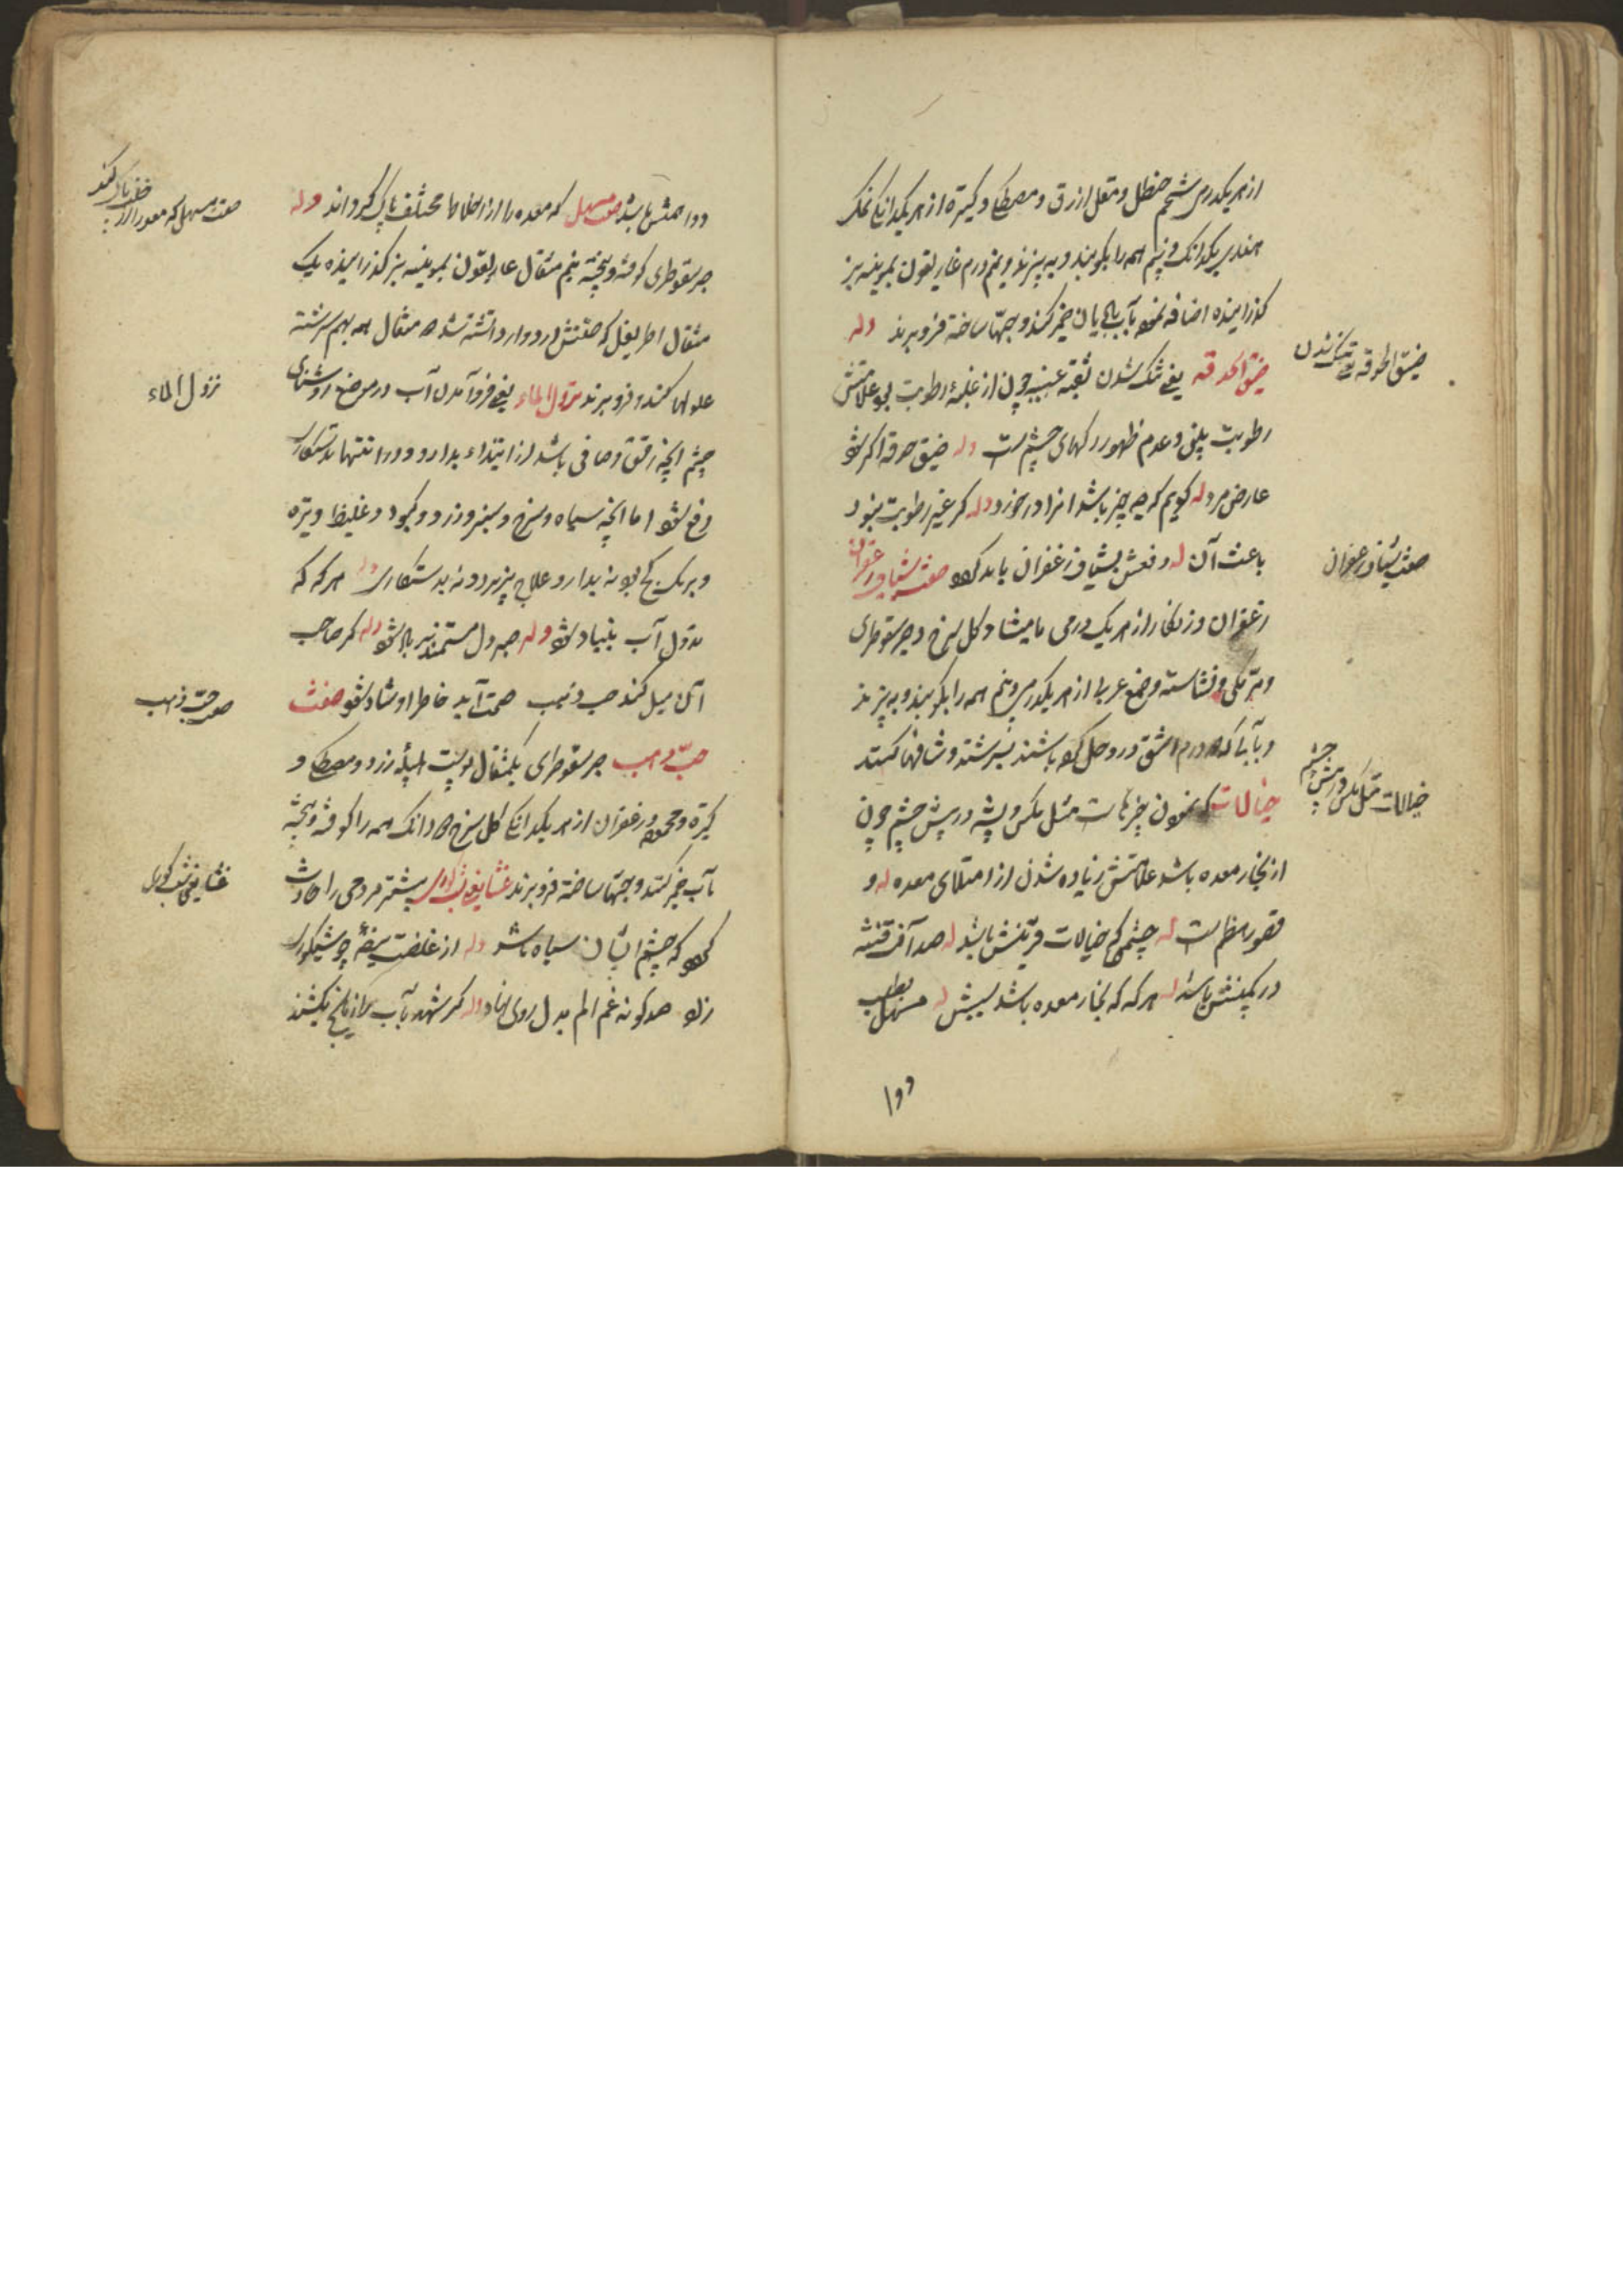 از هر یکدرمی شحم حنظل و مقل ازرق و مصطکی و کتیره از هر یکدانکی نمک
هندی یکدانک و نیم همه را بکوبند و به پیزند و نیم درم غاریقون بموینه بیز
کذرانیده اضافه نموده بآب خمیر کنند و حبها ساخته فرو برند وله
ضیق الحدقه یعنی تنک شدن ثقبه عنبیه چون از غلبهٔ رطوبت بود علامتش
رطوبت بینی و عدم ظهور رکهای چشم است وله ضیق حدقه اکر شود
عارض مرد وله کویم که چه چیز باشد انرا در خورد وله کر غیر رطوبت نبود
باعث آن له دفعش بشیاف زعفران باید کرد صفت شیاف زعفران
زعفران و زنکار از هر یک درمی مامیثا و کل سرخ و صبر سقوطری
و مر مکی و نشاسته و صمغ عربی از هر یکدرمی و نیم همه را بکوبند و به پیزند
و بآبی که درم اشق درو حل کرده باشند بسرشته و شافها کنند
خیالات که نمودن چیزهاست مثل مکس و پشه در پیش چشم چون
از بخار معده باشد علامتش زیاده شدن از امتلای معده له و
قصور هضم است له چشمی که خیالات قرینش باشد له صد آفت فتنه
در کمینش باشد له هر که که بخار معده باشد سببش له مسهل بطلب
دوا
ضیق الحدقه یعنی تنک شدن
صفت شیاف زعفران
خیالات مثل مکس در پیش چشم
دوا همش باشد صفت مسهل که معده را از اخلاط مختلف پاک کرداند وله
صبر سقوطری کوفته و بیخته نیم مثقال غاریقون بموینه بیز کذرانیده یک
مثقال اطریفل که صفتش در دوار دانسته شد مثقال همه بهم سرشته
حلوا کنند و فرو برند نزول الماء یعنی فرو آمدن آب در موضع روشنای
چشم انچه رقیق و صافی باشد در ابتداء بدارو و در انتها بدستکاری
رفع شود اما انچه سیاه و سرخ و سبز و زرد و کبود و غلیظ و تیره
و برنک کچ بود نه بدارو علاج پزیرد و نه بدستکاری وله هر که که
نزول آب بنیاد شود وله صبر دل مستمند بر باد شود وله کر صاحب
آن میل کند حب ذهب صحت آید خاطر او شاد شود صفت
حب ذهب صبر سقوطری یکمثقال پوست هلیله زرد و مصطکی و
کتیره و محموده و زعفران از هر یکدانکی کل سرخ دانک همه را کوفته و بیخته
بآب خمیر کنند و حبها ساخته فرو برند عشا یعنی شبکوری بیشتر مردمی را حادث
کردد که چشم ایشان سیاه باشد وله از غلظت بیضه چو شبکوری
زاد صد کونه غم الم بدل روی نهاد وله کر شهد بآب رازیانج بکشند
صفت مسهل که معده را از
نزول الماء
صفت حب ذهب
عشا یعنی شبکوری